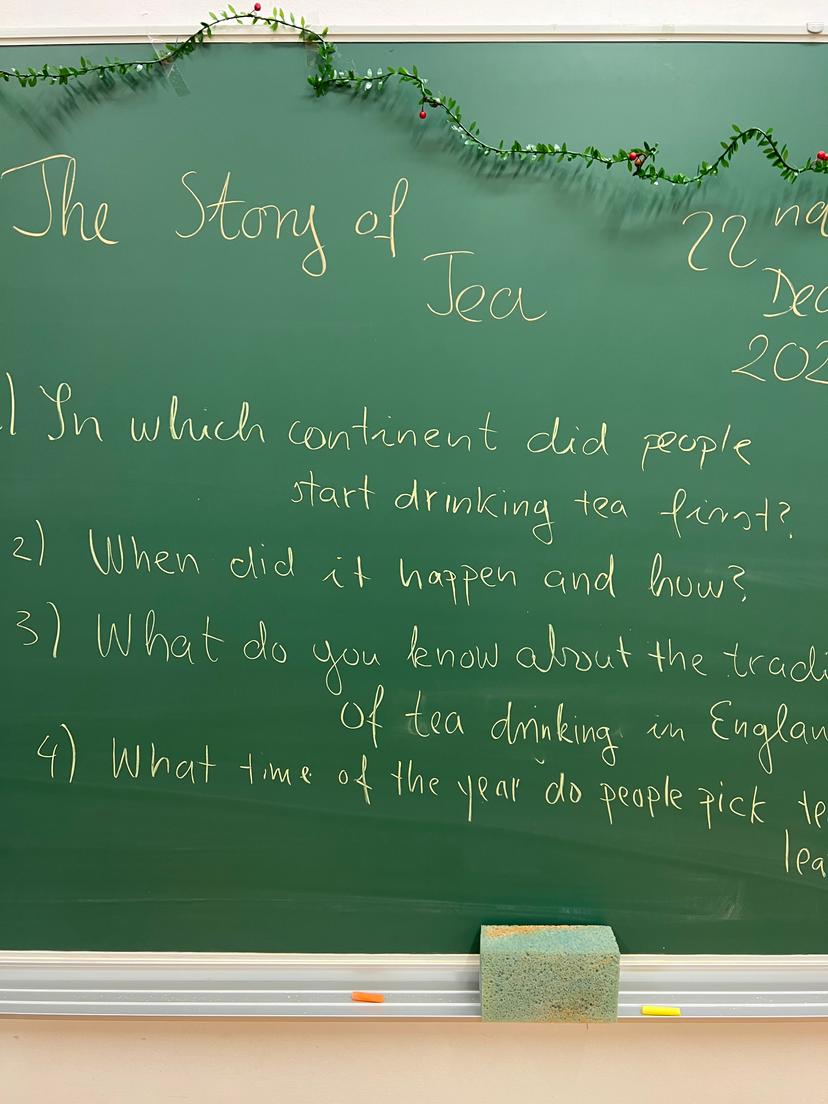 The Story of
Tea
22nd
Dec
202
1) In which continent did people
start drinking tea first?
2) When did it happen and how?
3) What do you know about the tradi
of tea drinking in Englan
4) What time of the year do people pick te
lea